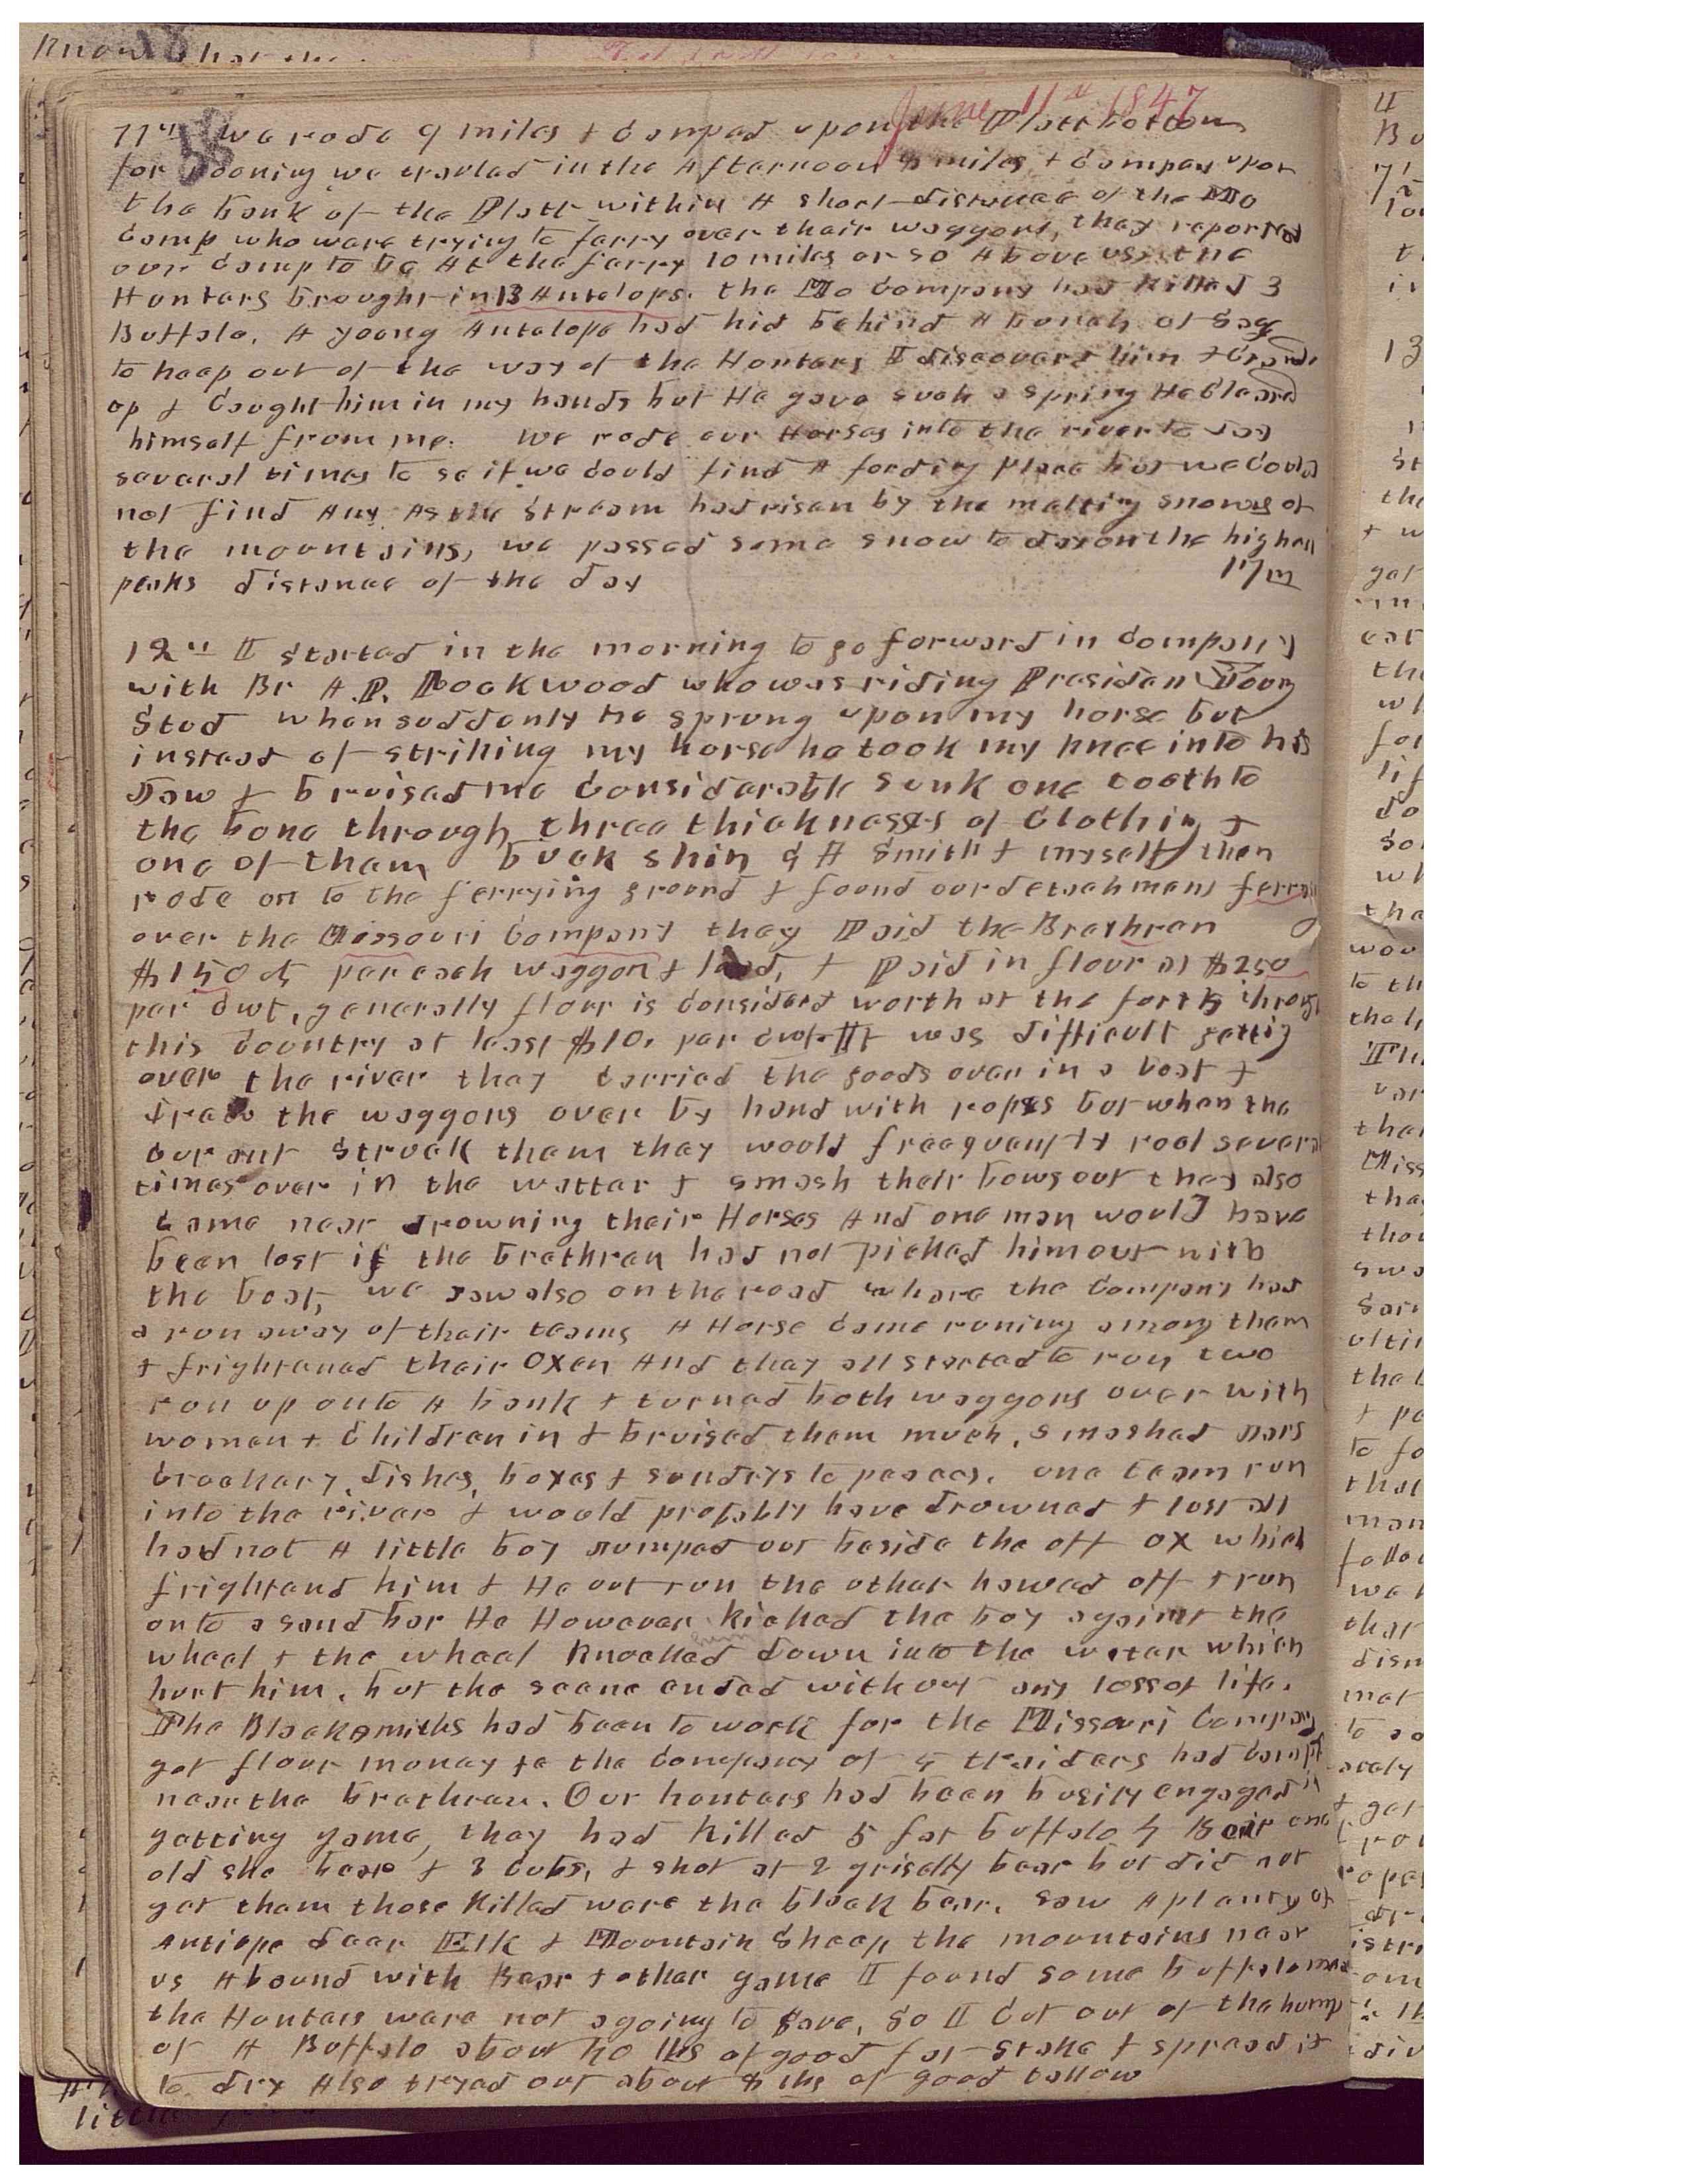 June 11th 1847
11th we rode 9 miles & Camped upon the Platt bottom
for nooning we traveled in the Afternoon 8 miles & Camped upon
the bank of the Platt within A short distance of the Mo
Camp who were trying to ferry over their waggons, they reported
our Camp to be At the ferry 10 miles or so Above us. the
Hunters brought in 13 Antelops. the Mo Company had killed 3
Buffalo. A young Antelope had hid behind A bunch of Sage
to keep out of the way of the Hunters I discoverd him &
up & Caught him in my hands but He gave such a spring He Cleared
himself from me. we rode our Horses into the river to day
several times to se if we Could find A fording place but we Could
not find Any As the Stream had risen by the melting snows of
the mountains, we passed some snow to day on the highest
peaks distance of the day 17 m
12th I started in the morning to go forward in Company
with Br A. P. Rockwood who was riding President Young
Stud when suddenly he sprung upon my horse but
instead of striking my horse he took my knee into his
Jaw & bruised me Considerable sunk one tooth to
the bone through three thicknesses of Clothing &
one of them buck skin A Smith & myself then
rode on to the ferrying ground & found our detachment ferrying
over the Missouri Company they Paid the Brethren
$150 cts per each waggon & load, & Paid in flour at $250
per Cwt, generally flour is Considerd worth at the forts through
this Country at least $10, per Cwt. It was difficult gettig
over the river they Carried the goods over in a boat &
draw the waggons over by hand with ropes but when the
Current Struck them they would freequently rool several
times over in the wattar & smash their bows out they also
Came near drowning their Horses And one man would have
been lost if the brethren had not picked him out with
the boat, we saw also on the road where the Company had
a run away of their teams A Horse Came runing among them
& frightened their Oxen And they all started to run two
run up onto A bank & turned both waggons over with
women & Children in & bruised them much, smashed Jars
Crockery, dishes, boxes & sundrys to peaces. one team run
into the river & would probably have drowned & lost all
had not A little boy Jumped out beside the off ox which
frightend him & He out run the other hawed off & run
onto a sand bar He However kicked the boy against the
wheel & the wheel knocked down into the water which
hurt him, but the scene ended without any loss of life.
The Blacksmiths had been to work for the Missouri Company
got flour money &c the Company of 4 traiders had Campt
near the brethren. Our hunters had been busily engaged in
getting game, they had killed 5 fat buffalo 4 Bear one
old she bear & 3 Cubs, & shot at 2 griselly bear but did not
get them those killed were the black bear. saw A plenty of
Antilope deer Elk & Mountain Sheep the mountains near
us Abound with Bear & other game I found some buffalo meat
the Hunters were not agoing to save, So I Cut out of the hump
of A Buffalo about 40 lbs of good fat stake & spread it
to dry Also tryed out about 8 lbs of good tallow